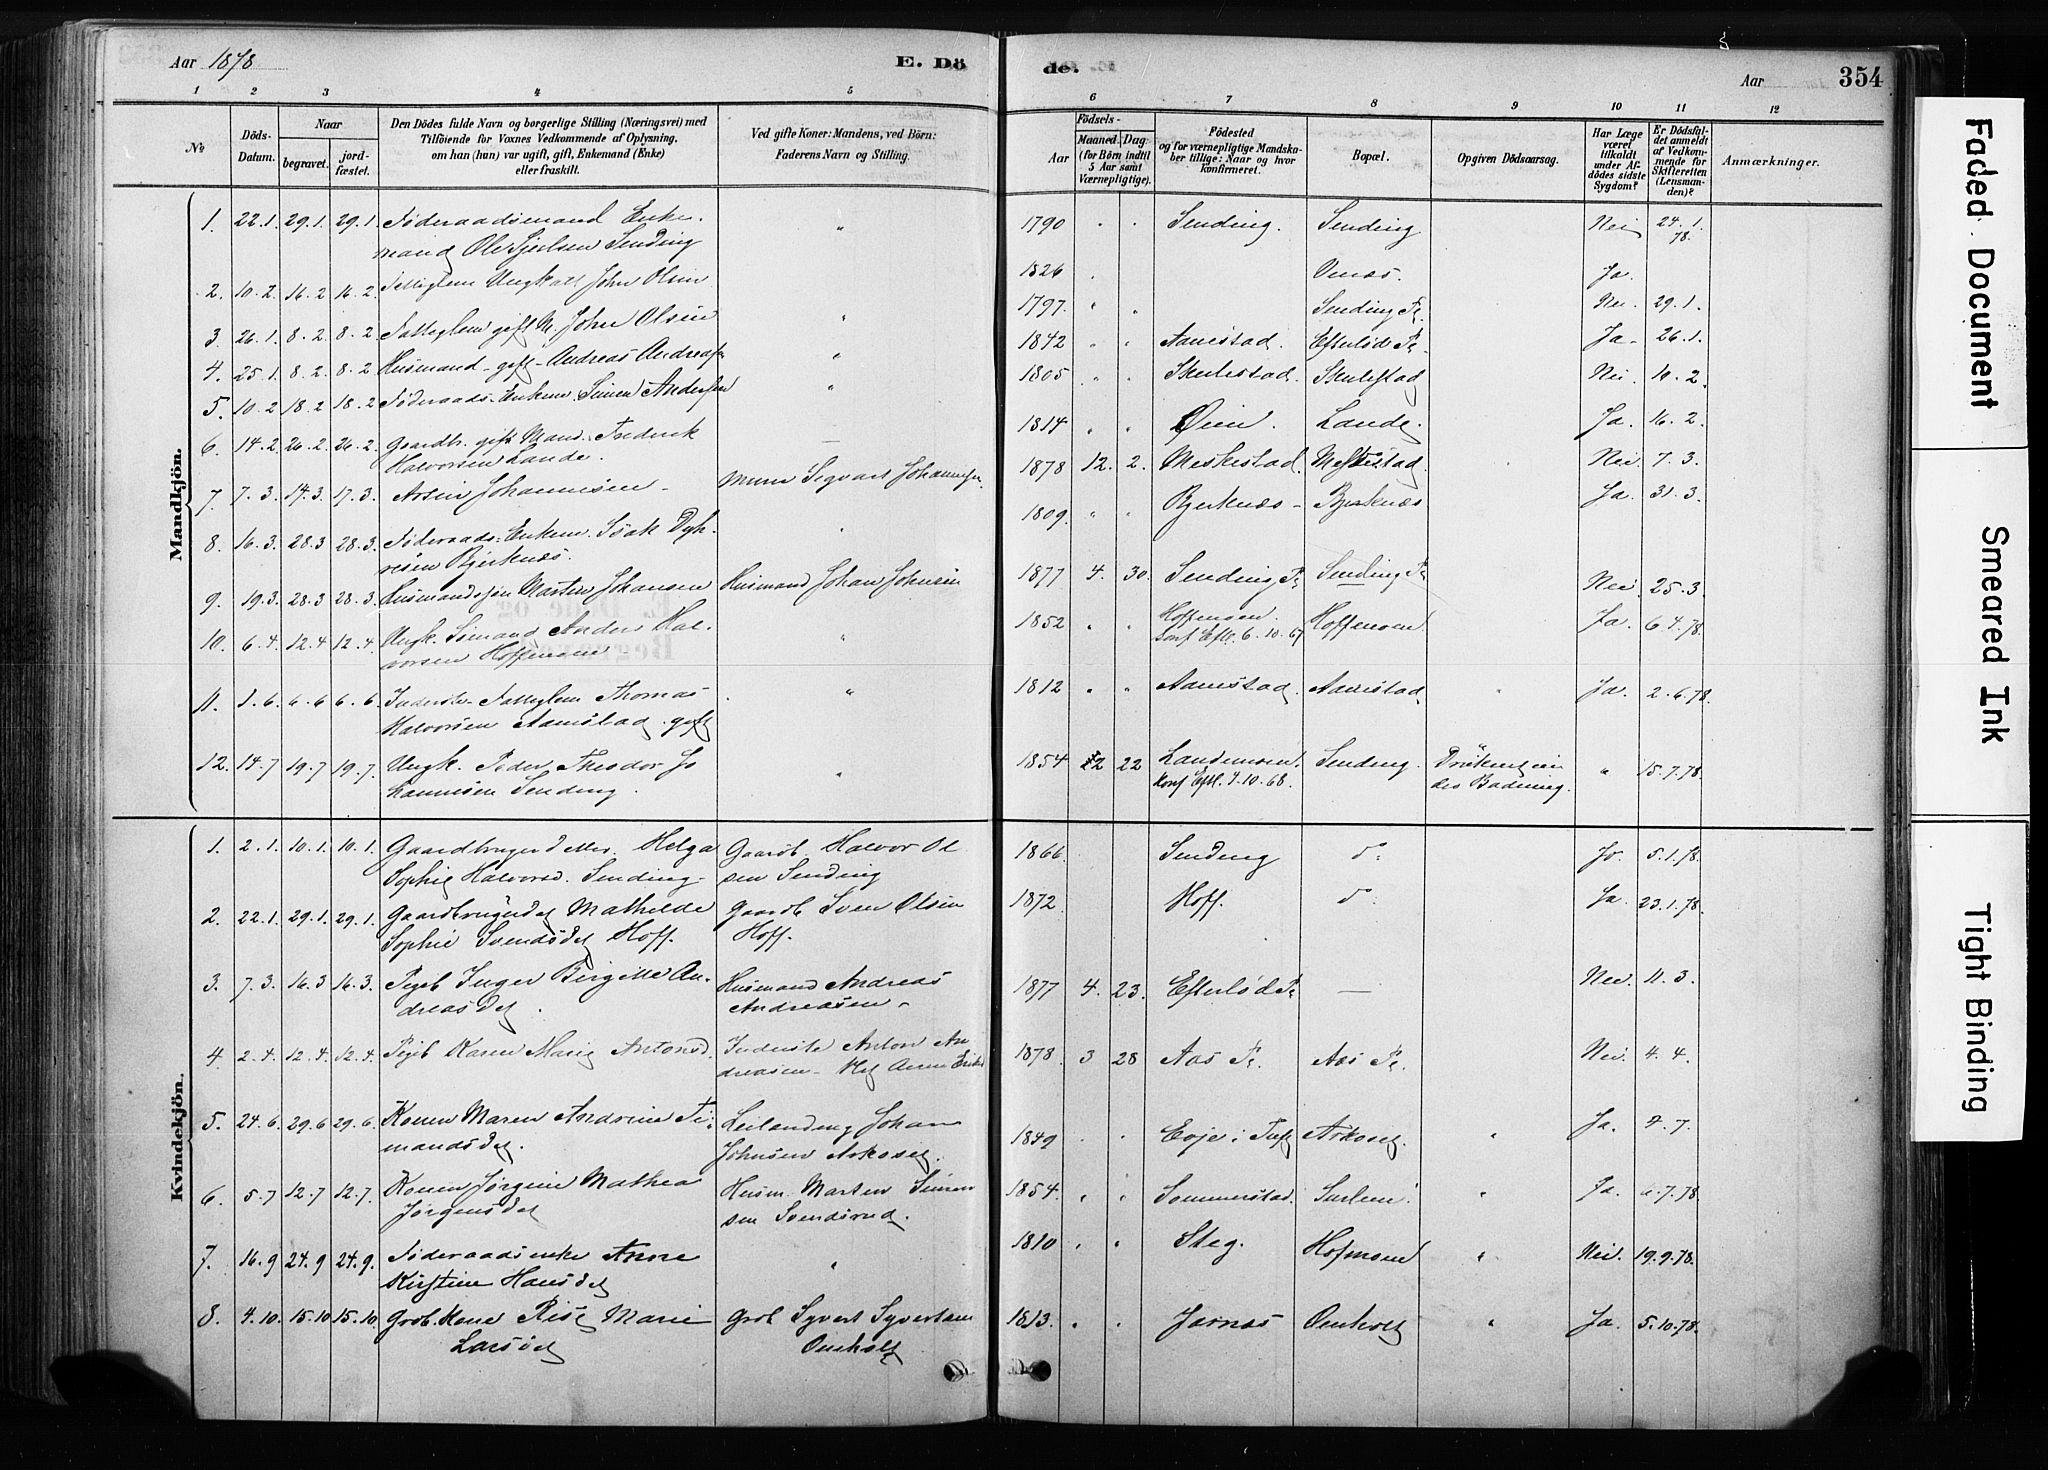 Aar 1878
E. Döde.
Aar
354
1 2 3 4 5 6 7 8 9 10 11 12
No
Döds-Datum.
Naar
begravet.
jordfæstet.
Den Dödes fulde Navn og borgerlige Stilling (Næringsvei) med
Tilföiende for Voxnes Vedkommende af Oplysning,
om han (hun) var ugift, gift, Enkemand (Enke)
eller fraskilt.
Ved gifte Koner: Mandens, ved Börn:
Faderens Navn og Stilling.
Födsels-
Aar
Maaned
Dag
(for Börn indtil
5 Aar samt
Værnepligtige).
Födested
og for værnepligtige Mandskaber
tillige: Naar og hvor
konfirmeret.
Bopæl.
Opgiven Dödsaarsag.
Har Læge
været
tilkaldt
under Afdödes
sidste
Sygdom?
Er Dödsfaldet
anmeldt
af Vedkommende
for
Skifteretten
(Lensmanden)?
Anmærkninger.
Mandkjön.
1. 22.1. 29.1. 29.1. Föderaadsmand Enkemand Ole Sjulsen Sending " 1790 " " Sending. Sending Nei 24.1.78.
2. 10.2 16.2 16.2. Fattiglem Ungkall John Olsen 1826 " Ja.
3. 26.1. 8.2. 8.2. Fattiglem gift M. John Olsen " 1797 " " Sending Pl. Nei. 29.1.
4. 25.1. 8.2. 8.2 Husmand - gift - Andreas Andreas " 1842 " " Aamestad. Efterlöd Pl Ja. 26.1.
5. 10.2 18.2 18.2 Föderaads-Enkem. Simen Andersen " 1805 " " Skulestad. Skulestad Nei. 10.2.
6. 14.2 26.2. 26.2. Gaardbr. gift Mand. Frederik Halvorsen Lande. — 1814 " " Öien. Lande. Ja. 16.2.
7. 7.3. 14.3. 17.3. Johannesen Sigvart Johannesen 1878 12. 2. Meskestad. Meskestad Nei. 7.3.
8. 16.3. 28.3 28.3. Föderaads-Enkem. Isak Bjerknæs. " 1809. " " Bjerknæs - Bjerknæs Ja. 31.3.
9. 19.3. 28.3 28.3. Husmandssön Marten Johansen Husmand Johan Johnsen 1877 4. 30. Sending Pl Sending Pl Nei. 25.3.
10. 6.4. 12.4 12.4. Ungk. Anders Halvorsen Hoffmoen " 1852 " " Hoffmoen. Conf. Eftl. 6.10.67 Hoffmoen Ja. 6.4.78.
11. 1.6. 6.6 6.6. Inderste-Fattiglem Thomas Halvorsen Aamestad. gift " 1812 " " Aamestad. Aamestad. " Ja. 2.6.78.
12. 14.7 19.7 19.7. Ungk. Peder Theodor Johannesen Sending. " 1854 12 22 Landemoen. Konf Eftl. 4.10.68. Sending. " 15.7.78.
Kvindekjön.
1. 2.1. 10.1. 10.1. Gaardbruger detter. Helga Sophie Halvorsd. Sending. Gaardb. Halvor Olsen Sending 1866. Sending do Ja. 5.1.78.
2. 22.1. 29.1. 29.1. Gaardbruger Mathilde Sophie Svendsdt Hoff. Gaardb Sven Olsen Hoff. 1872. Hoff. do Ja. 23.1.78.
3. 7.3. 16.3 16.3. Pigeb Inger Birgitte Andreasdt. Husmand Andreas Andreasen. 1877 4. 23. Efterlöd Pl — Nei. 11.3.
4. 2.4. 12.4. 12.4. Pigeb Karen Marie Antonsd. Inderste Anton Andreasen 1878. 3 28 Aas Pl. Aas Pl. Nei. 4.4.
5. 24.6. 29.6 29.6. Konen Maren Andrine Leilending Johan Johnsen 1849 " " " Ja. 4.7.
6. 5.7 12.7 12.7. Konen Jørgine Mathea Jørgensdt Husm. Marten Simensen Svendsrud. 1854. " " Sommerstad. " Ja. 7.78.
7. 16.9 24.9 24.9. Föderaadsenke Anne Kirstine Hansdt " 1810 " " Steg. Hofmoen " Nei. 19.9.78.
8. 4.10. 15.10 15.10. Grdb. Kone Marie Larsdt Grdb Syvert Syvertsen 1813. " " Jarnæs " Ja. 5.10.78.
Faded Document
Smeared Ink
Tight Binding